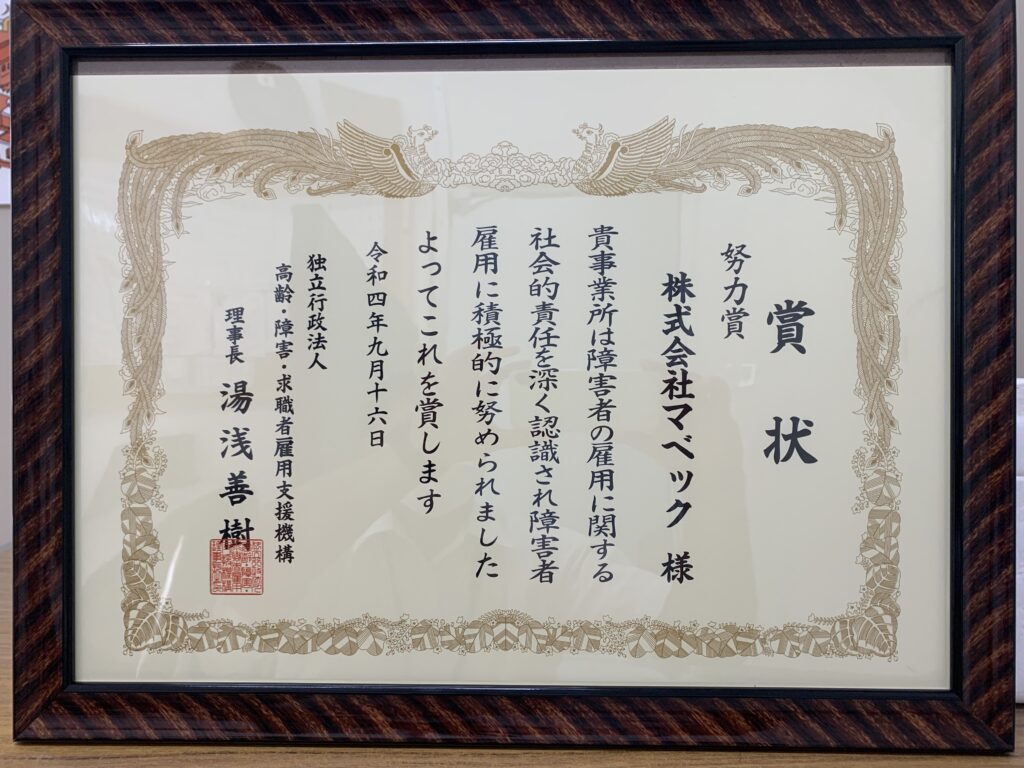 賞状
努力賞
株式会社マベック 様
貴事業所は障害者の雇用に関する
社会的責任を深く認識され障害者
雇用に積極的に努められました
よってこれを賞します
令和四年九月十六日
独立行政法人
高齢・障害・求職者雇用支援機構
理事長 湯浅善樹